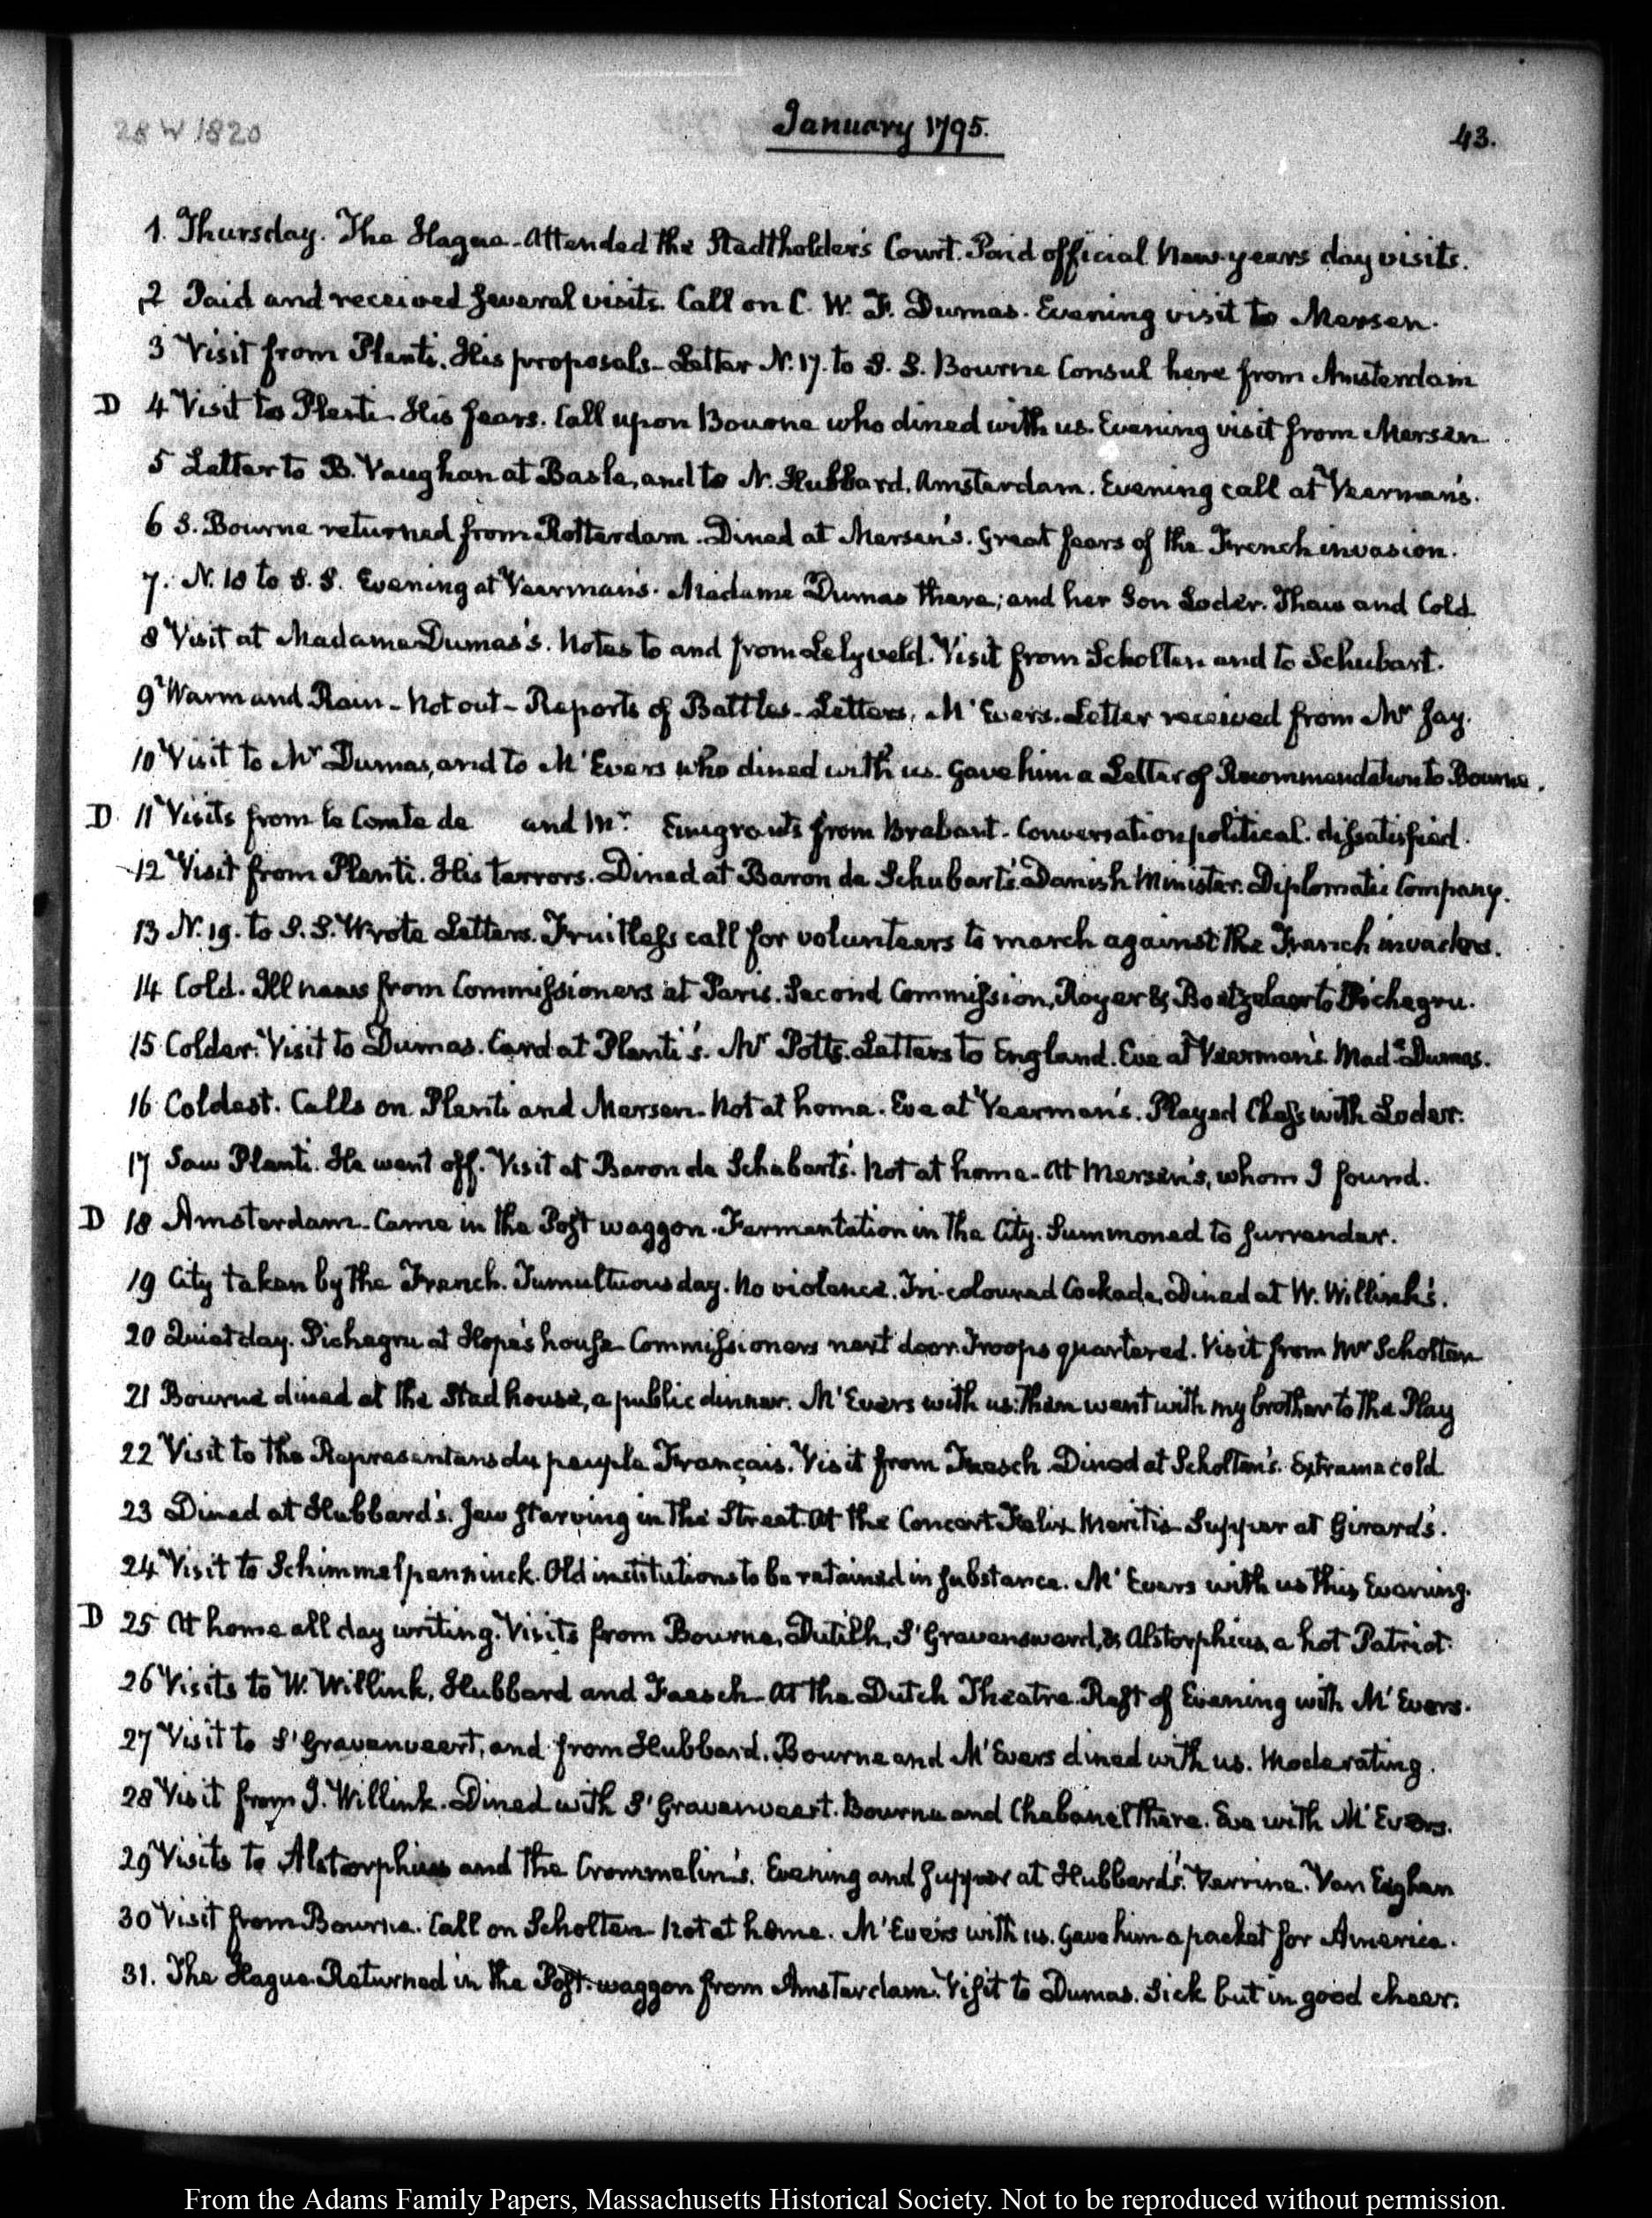 28 W 1820
January 1795.
43.
1. Thursday. The Hague - Attended the Stadtholder's Court. Paid official New-years day visits.
2 Paid and received several visits. Call on C. W. F. Dumas. Evening visit to Mersen.
3 Visit from Planti. His proposals - Letter N. 17. to S. S. Bourne Consul here from Amsterdam
D 4 Visit to Planti. His fears. Call upon Bourne who dined with us. Evening visit from Mersen.
5 Letter to B. Vaughan at Basle, and to N. Hubbard, Amsterdam. Evening call at Veerman's.
6 S. Bourne returned from Rotterdam. Dined at Mersen's. Great fears of the French invasion.
7. N. 18 to S. S. Evening at Veerman's. Madame Dumas there; and her Son Loder. Thaw and Cold
8 Visit at Madame Dumas's. Notes to and from Lelyveld. Visit from Scholten and to Schubart.
9 Warm and Rain - Not out - Reports of Battles - Letters. M'Evers. Letter received from Mr Jay.
10 Visit to Mr Dumas, and to M'Evers who dined with us. Gave him a Letter of Recommendation to Bourne.
D. 11 Visits from le Comte de and Mr. Emigrants from Brabant. Conversation political. dissatisfied.
12 Visit from Planti. His terrors. Dined at Baron de Schubart's. Danish Minister. Diplomatic Company.
13 N. 19. to S. S. Wrote Letters. Fruitless call for volunteers to march against the French invaders.
14 Cold. Ill news from Commissioners at Paris. Second Commission, Royer & Boetzelaer to Pichegru.
15 Colder. Visit to Dumas. Card at Planti's. Mr Potts. Letters to England. Eve at Veerman's. Made Dumas.
16 Coldest. Calls on Planti and Mersen. Not at home. Eve at Veerman's. Played Chess with Loder.
17 Saw Planti. He went off. Visit at Baron de Schubart's. Not at home - At Mersen's, whom I found.
D 18 Amsterdam. Came in the Post waggon. Fermentation in the City. Summoned to surrender.
19 City taken by the French. Tumultuous day. No violence. Tri-coloured Cockade. Dined at W. Willink's.
20 Quiet day. Pichegru at Hope's house. Commissioners next door. Troops quartered. Visit from Mr Scholten
21 Bourne dined at the Stadhouse, a public dinner. M'Evers with us: then went with my brother to the Play
22 Visit to the Representans du peuple Français. Visit from Faesch. Dined at Scholten's. Extreme cold
23 Dined at Hubbard's. Jew starving in the Street. At the Concert Felix Meritis. Supper at Girard's.
24 Visit to Schimmelpenninck. Old institutions to be retained in substance. M'Evers with us this Evening.
D 25 At home all day writing. Visits from Bourne, Dutilh, S'Gravensweerd, & Alstorphius, a hot Patriot.
26 Visits to W. Willink, Hubbard and Faesch. At the Dutch Theatre. Rest of Evening with M'Evers.
27 Visit to S'Gravenveert, and from Hubbard. Bourne and M'Evers dined with us. Moderating.
28 Visit from J. Willink. Dined with S'Gravenveert. Bourne and Chabanel there. Eve with M'Evers.
29 Visits to Alstorphius and the Crommelin's. Evening and supper at Hubbard's. Verrine. Van Eeghen
30 Visit from Bourne. Call on Scholten. Not at home. M'Evers with us. Gave him a packet for America.
31. The Hague. Returned in the Post-waggon from Amsterdam. Visit to Dumas. Sick but in good cheer.
From the Adams Family Papers, Massachusetts Historical Society. Not to be reproduced without permission.